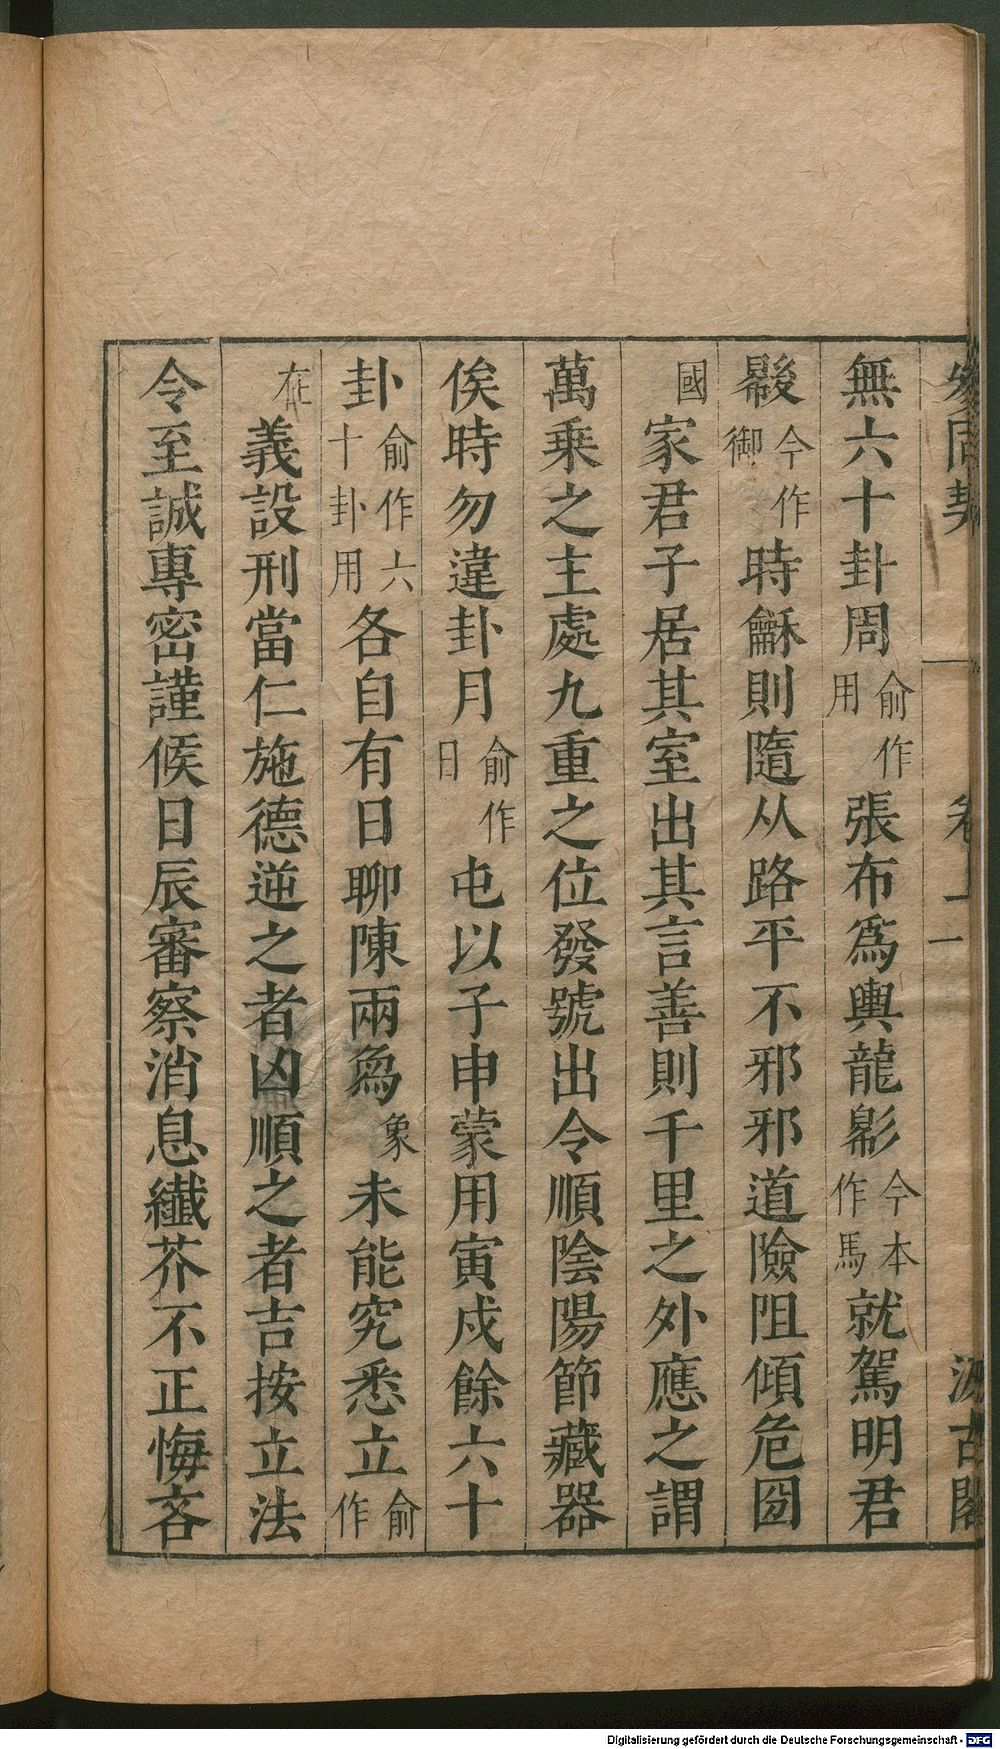 參同契 卷 汲古閣
無六十卦周俞作用張布爲輿龍今本作馬就駕明君
今作御時龢則隨从路平不邪邪道險阻傾危囶
國家君子居其室出其言善則千里之外應之謂
萬乗之主處九重之位發號出令順陰陽節藏器
俟時勿違卦月俞作日屯以子申蒙用寅戍餘六十
卦俞作六十卦用各自有日聊陳兩爲象未能究悉立俞作
在義設刑當仁施德逆之者凶順之者吉按立法
令至誠專密謹候日辰審察消息纎芥不正悔吝
Digitalisierung gefördert durch die Deutsche Forschungsgemeinschaft - DFG